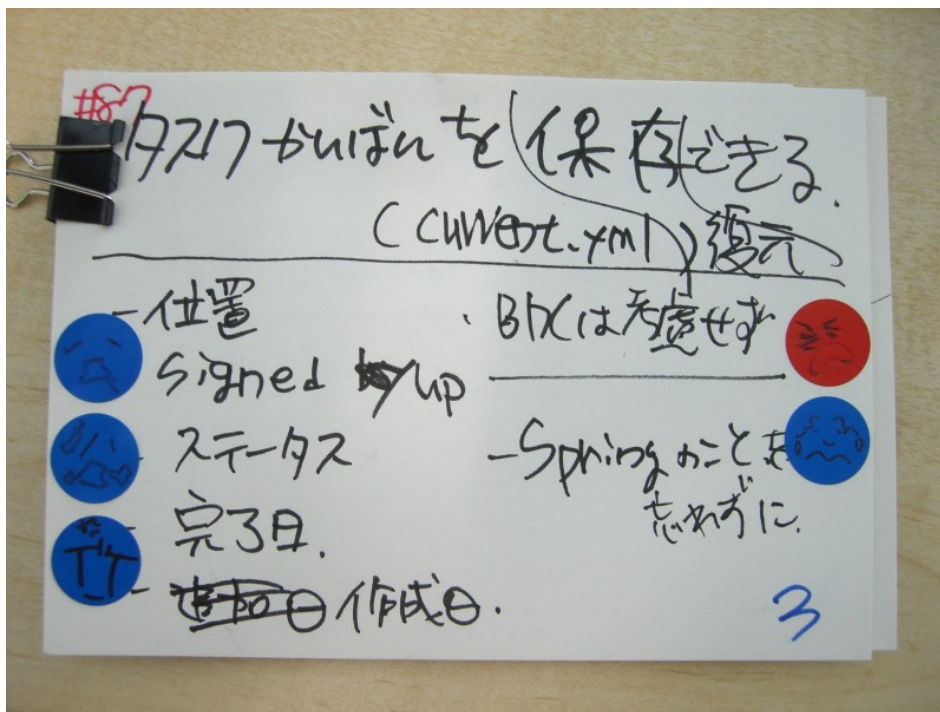 #87
タスクかんばんを保存できる.
(current.yml) 復元
- 位置
signed up
- ステータス
- 完了日.
- 追加日 作成日.
・BDCは考慮せず
- Springのことを
忘れずに.
3